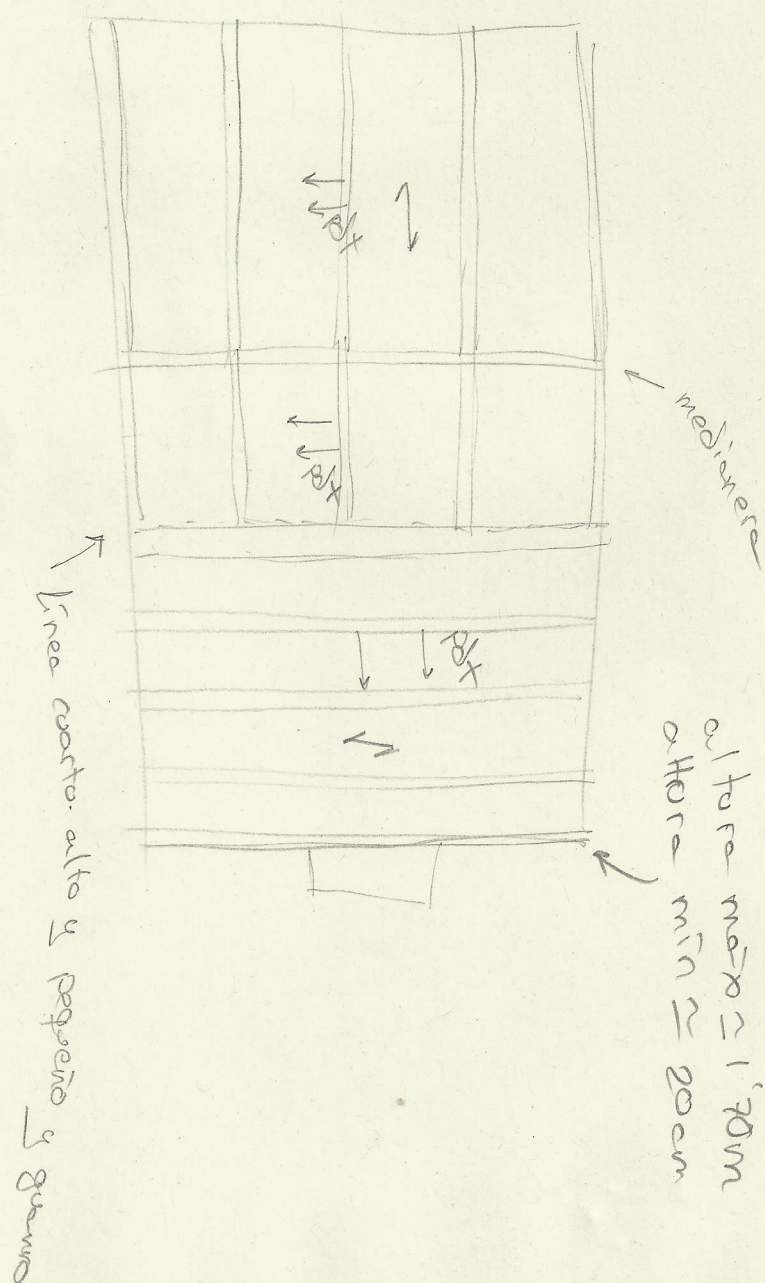 pdx
pdx
pdx
medianera
altura máx ≃ 1'70m
altura mín ≃ 20cm
línea cuarto alto y pequeño y guarro